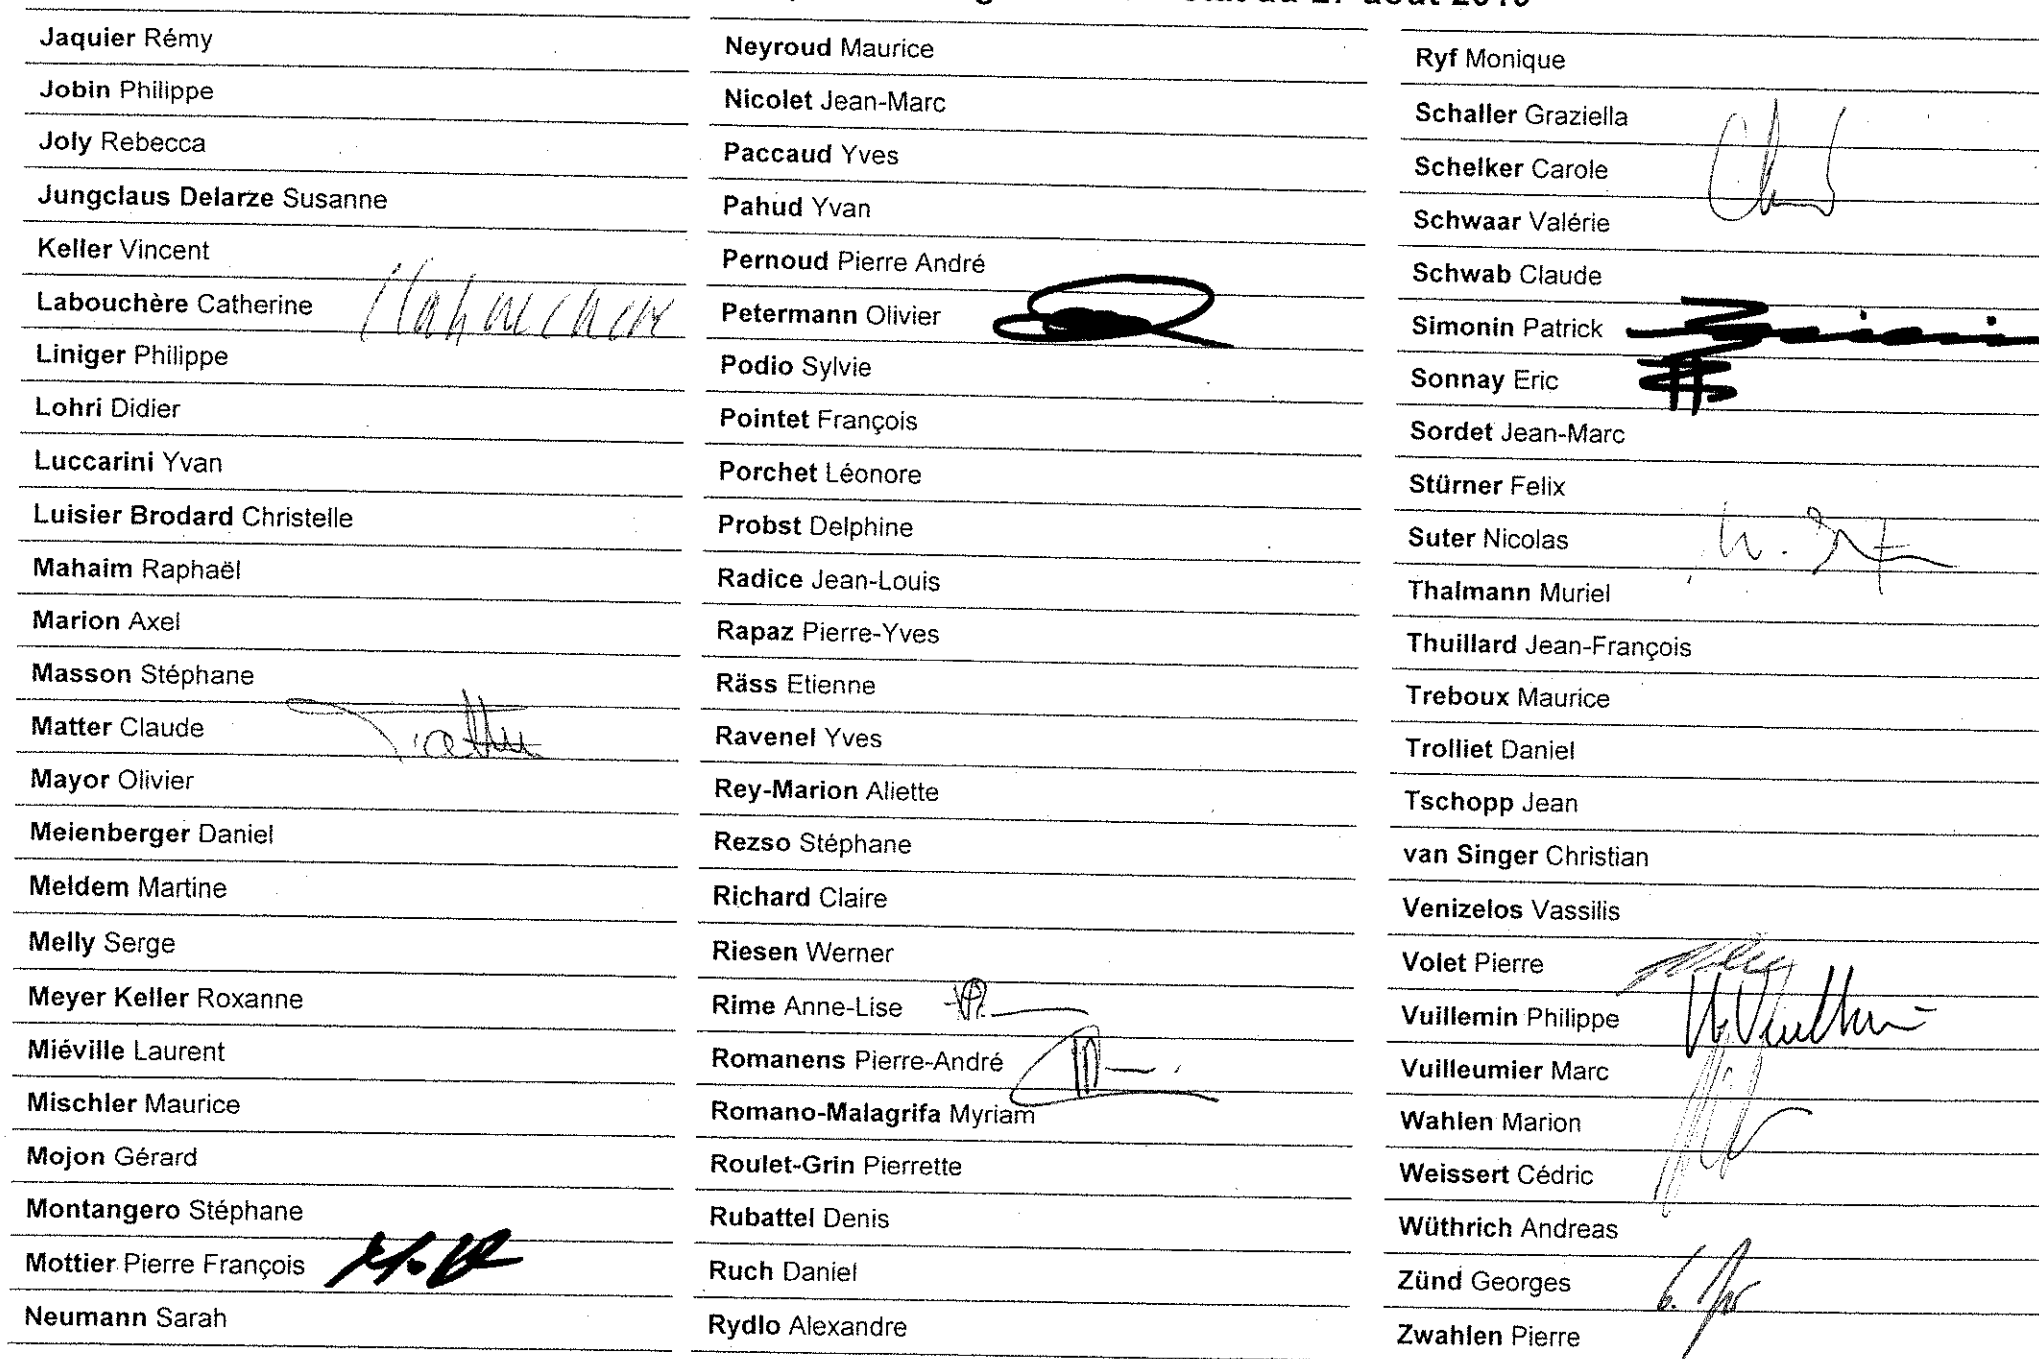 27 août 2019
Jaquier Rémy
Jobin Philippe
Joly Rebecca
Jungclaus Delarze Susanne
Keller Vincent
Labouchère Catherine
Liniger Philippe
Lohri Didier
Luccarini Yvan
Luisier Brodard Christelle
Mahaim Raphaël
Marion Axel
Masson Stéphane
Matter Claude
Mayor Olivier
Meienberger Daniel
Meldem Martine
Melly Serge
Meyer Keller Roxanne
Miéville Laurent
Mischler Maurice
Mojon Gérard
Montangero Stéphane
Mottier Pierre François
Neumann Sarah
Neyroud Maurice
Nicolet Jean-Marc
Paccaud Yves
Pahud Yvan
Pernoud Pierre André
Petermann Olivier
Podio Sylvie
Pointet François
Porchet Léonore
Probst Delphine
Radice Jean-Louis
Rapaz Pierre-Yves
Räss Etienne
Ravenel Yves
Rey-Marion Aliette
Rezso Stéphane
Richard Claire
Riesen Werner
Rime Anne-Lise
Romanens Pierre-André
Romano-Malagrifa Myriam
Roulet-Grin Pierrette
Rubattel Denis
Ruch Daniel
Rydlo Alexandre
Ryf Monique
Schaller Graziella
Schelker Carole
Schwaar Valérie
Schwab Claude
Simonin Patrick
Sonnay Eric
Sordet Jean-Marc
Stürner Felix
Suter Nicolas
Thalmann Muriel
Thuillard Jean-François
Treboux Maurice
Trolliet Daniel
Tschopp Jean
van Singer Christian
Venizelos Vassilis
Volet Pierre
Vuillemin Philippe
Vuilleumier Marc
Wahlen Marion
Weissert Cédric
Wüthrich Andreas
Zünd Georges
Zwahlen Pierre